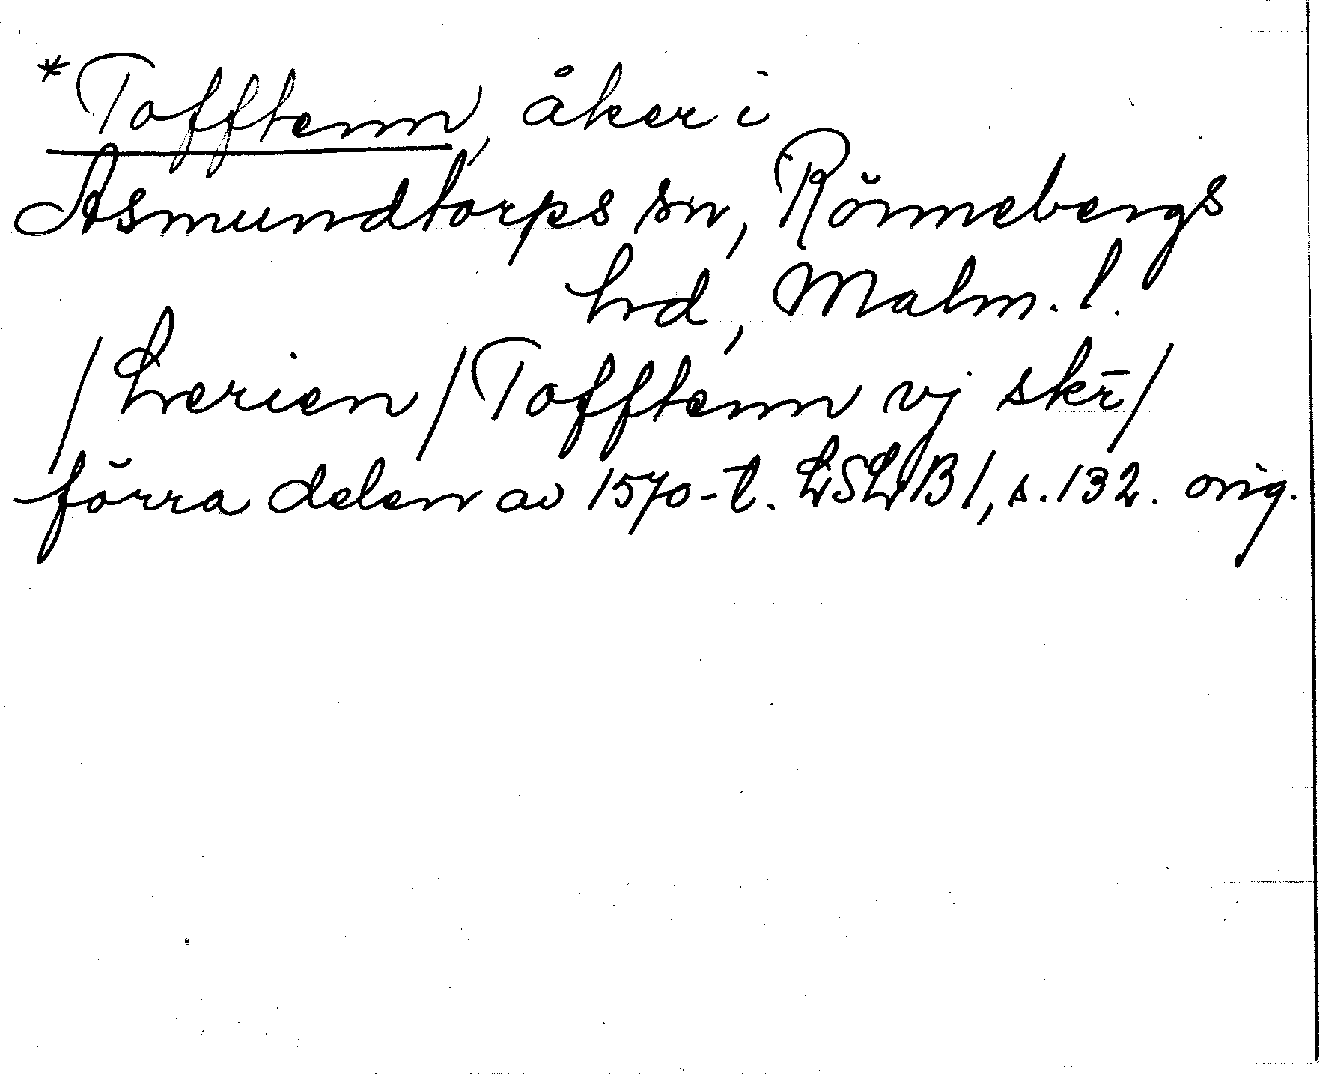 *Tofftenn, åker i
Asmundtorps sn, Rönnebergs
hrd, Malm. l.
/herien/Tofftenn vj skr̄/
förra delen av 1570-t. LSLB 1, s. 132. orig.